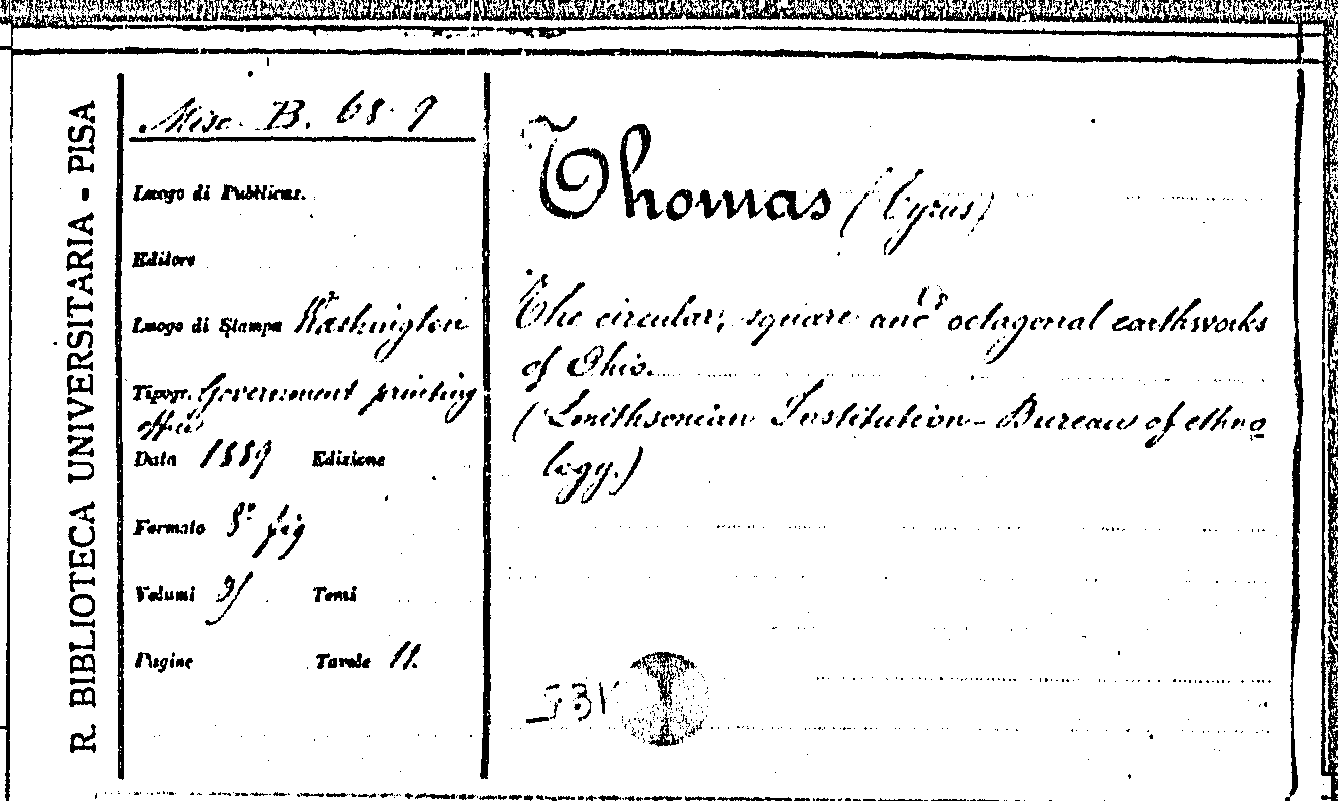 R. BIBLIOTECA UNIVERSITARIA - PISA
Misc. B. 68. 9
Luogo di Pubblicaz.
Editore
Luogo di Stampa Washington
Tipogr. Government printing
office
Data 1889 Edizione
Formato 8° fig
Volumi Tomi
Pagine Tavole 11.
Thomas (Cyrus)
The circular, square and octagonal earthworks
of Ohio.
(Smithsonian Institution - Bureau of ethno
logy.)